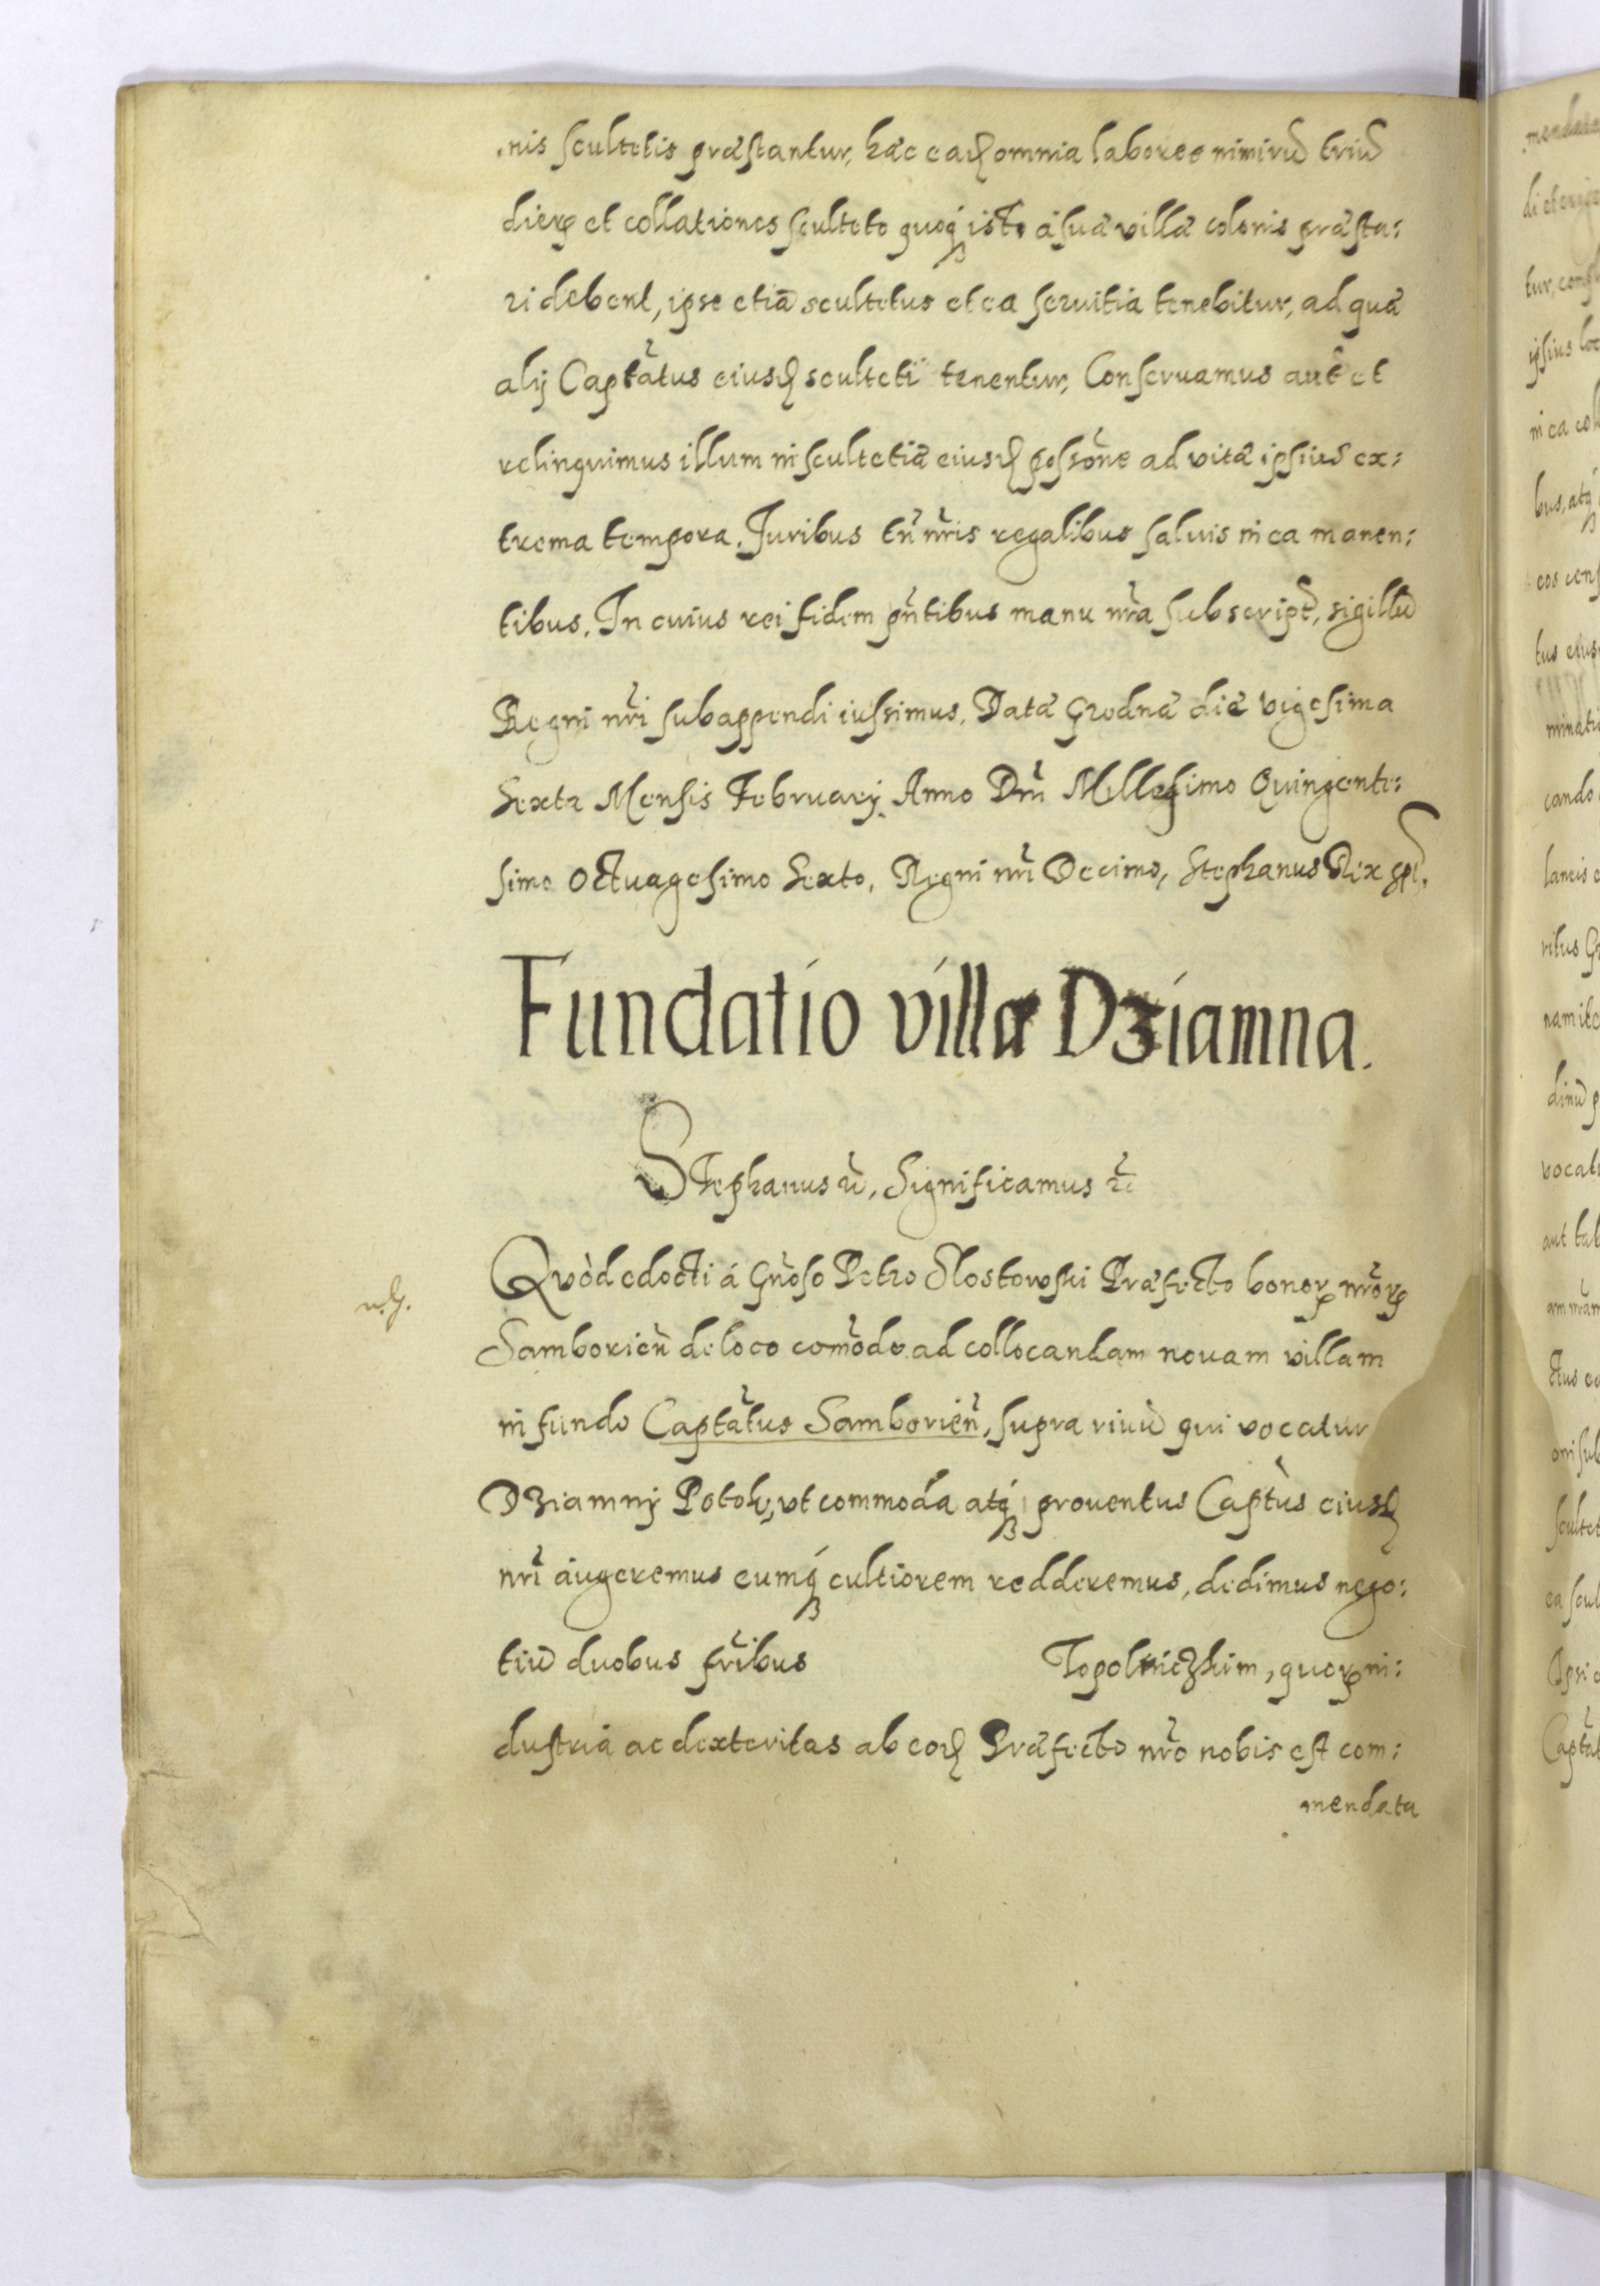 nis scultetis præstantur, hæc ead omnia labores nimirũ triũ
dierȝ et collationes sculteto quoqȝ isto á suæ villæ colonis præsta:
ri debent, ipse etiã scultetus et ea seruitia tenebitur, ad quæ
alij Captãtus eiusd sculteti tenentur, Conseruamus aut̃ et
relinquimus illum in scultetiæ eiusd possõne ad vitæ ipsius ex:
trema tempora. Juribus tñ nr̃is regalibus saluis in ea manen:
tibus. In cuius rei fidem pñtibus manu nr̃a subscript̃, sigillũ
Regni nr̃i subappendi iussimus. Datæ Grodnæ die vigesima
Sexta Mensis February. Anno Dñi Millesimo Quingente:
simo Octuagesimo Sexto, Regni nr̃i Decimo, Stephanus Rex
Fundatio villæ Dziamna.
Stephanus , Significamus
Quòd edocti á Gñoso Petro Slostowski Præfecto bonorȝ nr̃orȝ
Samborieñ de loco com̃odo ad collocandam nouam villam
in fundo Captãtus Samborieñ, supra riuũ qui vocatur
Dziamny Potok, vt commoda atqȝ prouentus Captũs eiusd
nr̃i augeremus eumqȝ cultiorem redderemus, dedimus nego:
tiũ duobus fr̃ibus Topolniczkim, quorȝ in:
dustria ac dexteritas ab eod Præfecto nr̃o nobis est com:
mendata